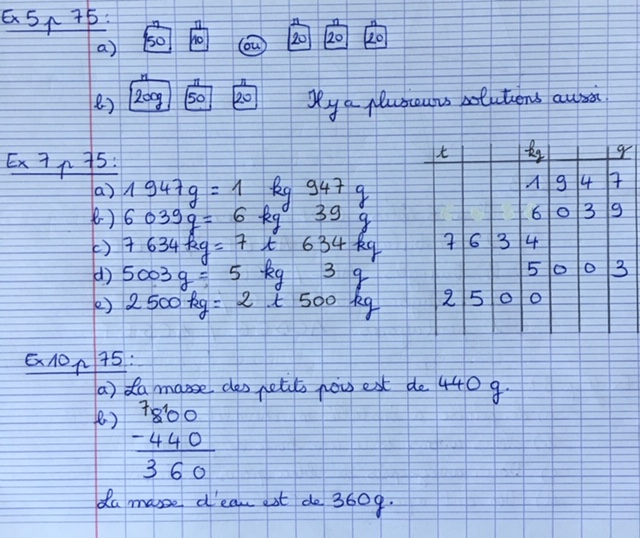 Ex 5 p 75 :
a) 50 10 ou 20 20 20
b) 200g 50 20 Il y a plusieurs solutions aussi.
Ex 7 p 75 :
t kg g
a) 1 947 g = 1 kg 947 g 1 9 4 7
b) 6 039 g = 6 kg 39 g 6 0 3 9
c) 7 634 kg = 7 t 634 kg 7 6 3 4
d) 5003 g = 5 kg 3 g 5 0 0 3
e) 2 500 kg = 2 t 500 kg 2 5 0 0
Ex 10 p 75 :
a) La masse des petits pois est de 440 g.
b) 7 8 1 0 0
- 4 4 0
3 6 0
La masse d'eau est de 360g.